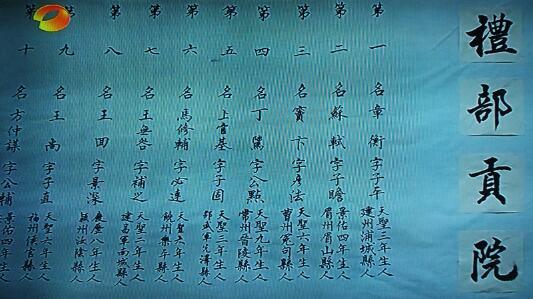 禮部貢院
第一名章衡字子年天聖三年生人建州浦城縣人
第二名蘇軾字子瞻景佑四年生人眉州眉山縣人
第三名竇卞字彥法天聖三年生人曹州冤句縣人
第四名丁騭字公點天聖九年生人常州晉陵縣人
第五名上官基字子固天聖二年生人邵武軍光澤縣人
第六名馬修輔字必達天聖六年生人饒州樂平縣人
第七名王無咎字補之天聖二年生人建昌軍南城縣人
第八名王回字景深慶曆八年生人潁州汝陰縣人
第九名王尚字子直天聖六年生人福州侯官縣人
第十名方仲謀字公輔景佑四年生人